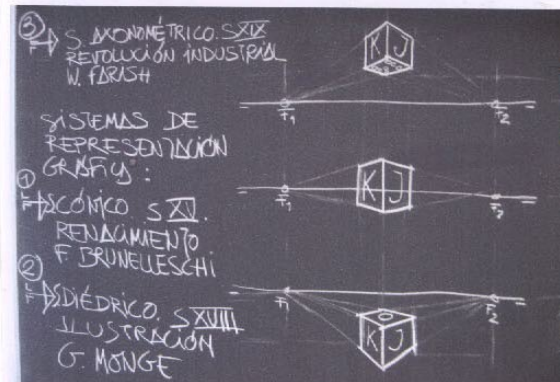 ③ S. AXONOMÉTRICO. S XIX
REVOLUCIÓN INDUSTRIAL
W. FARISH
SISTEMAS DE
REPRESENTACIÓN
GRÁFICA:
① S CÓNICO S XV.
RENACIMIENTO
F BRUNELLESCHI
② S DIÉDRICO. S XVIII
ILUSTRACIÓN
G. MONGE
K J
F1 F2
K J
F1 F2
F1 F2
K J